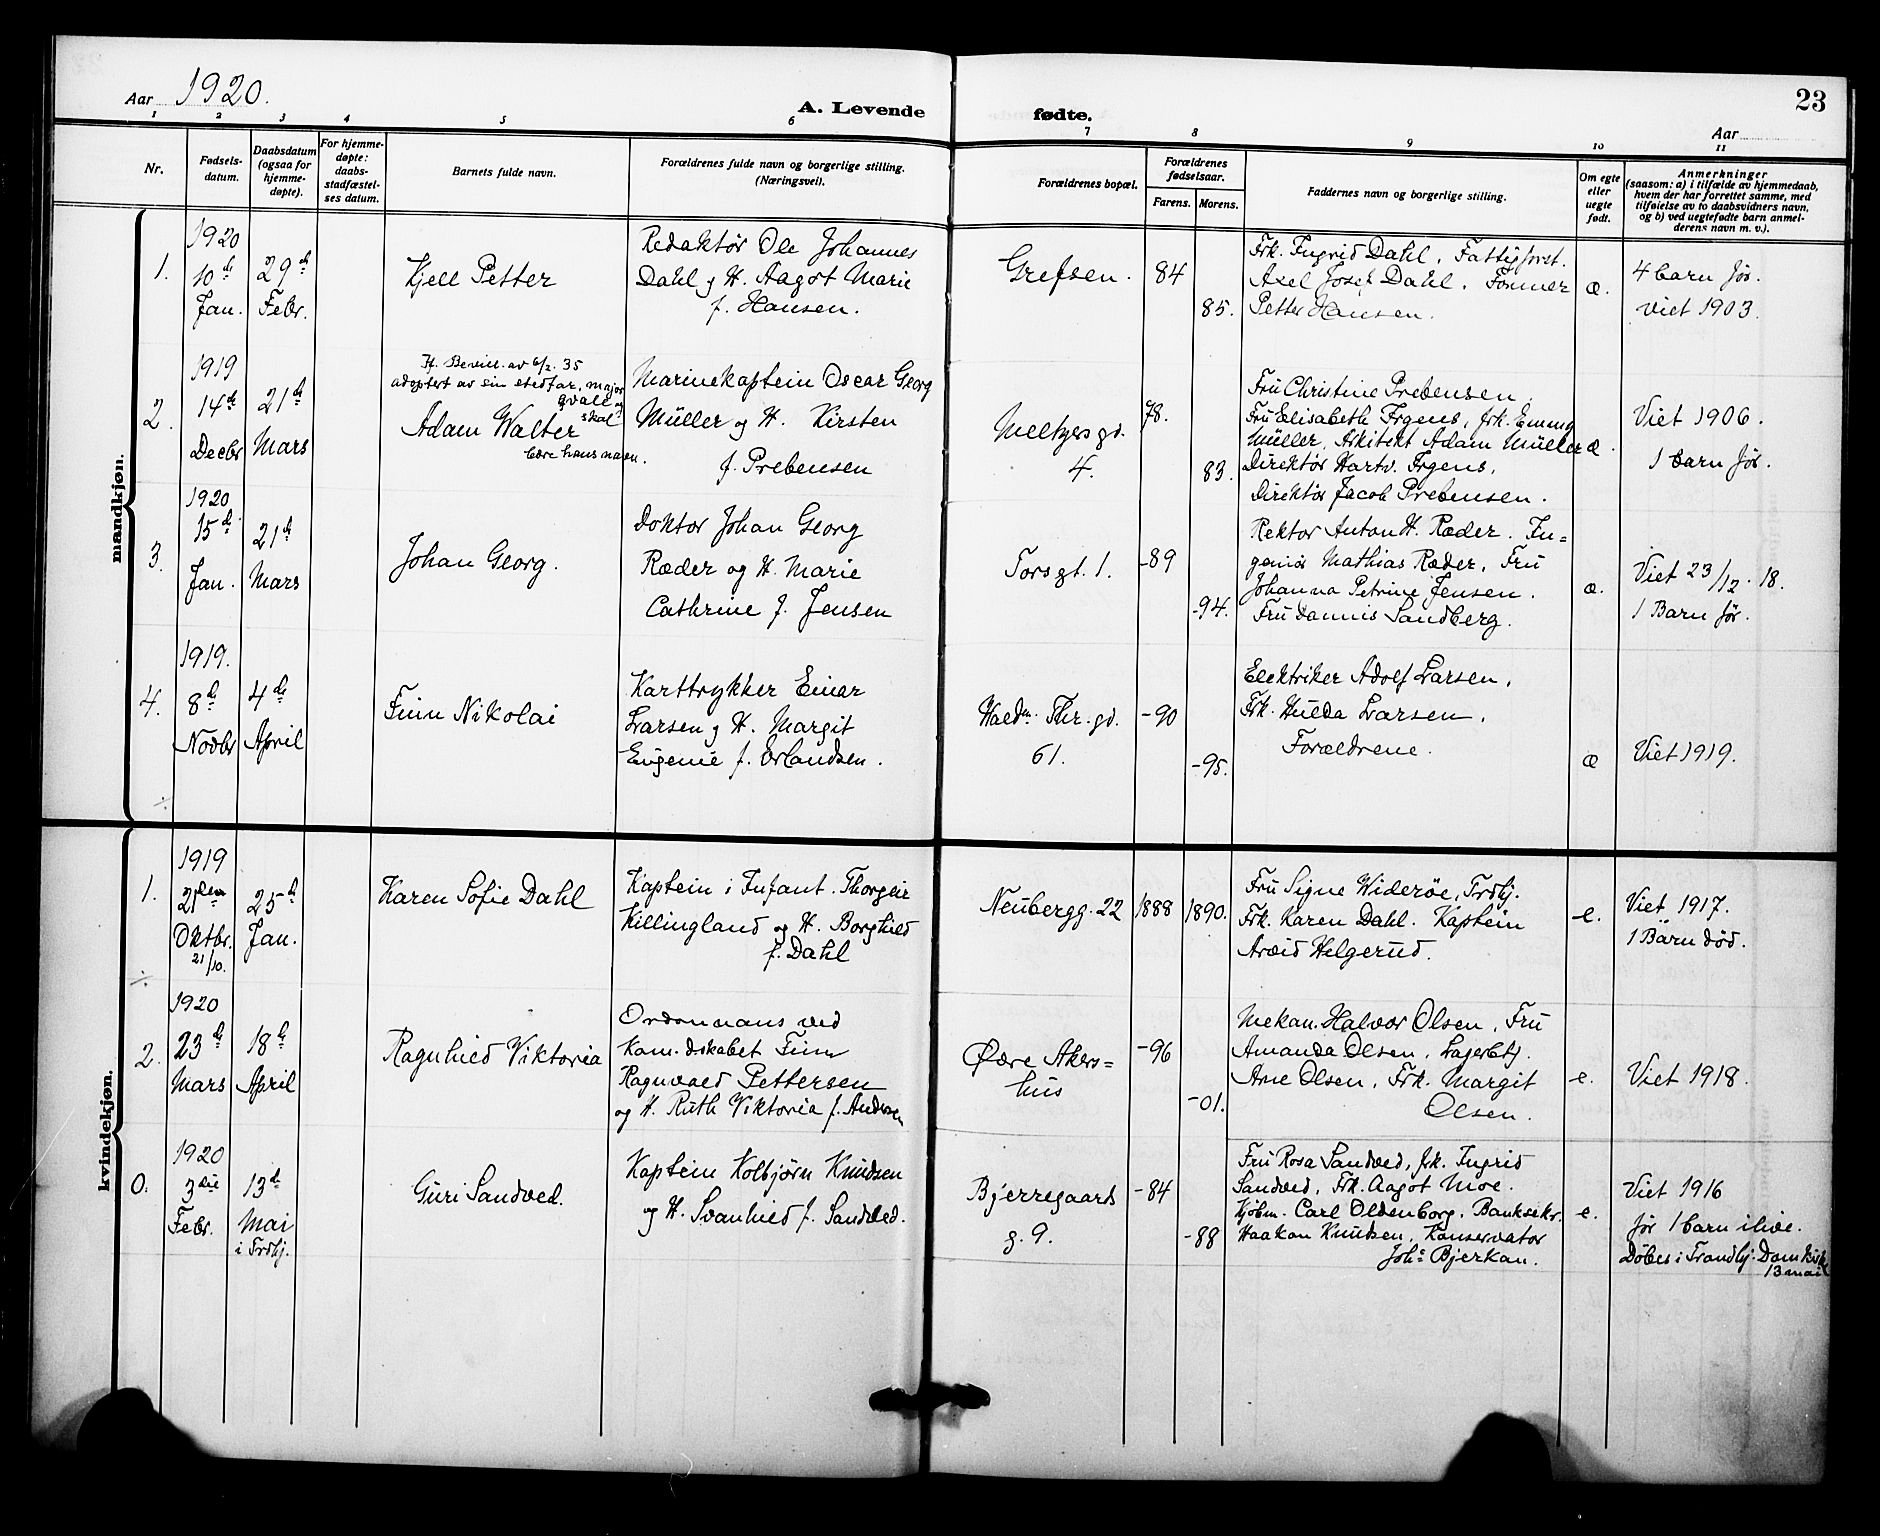 Aar 1920.
A. Levende
fødte.
23
Aar
1 2 3 4 5 6 7 8 9 10 11
Nr.
Fødsels-
datum.
Daabsdatum
(ogsaa for
hjemme-
døpte).
For hjemme-
døpte:
daabs-
stadfæstel-
ses datum.
Barnets fulde navn.
Forældrenes fulde navn og borgerlige stilling.
(Næringsvei).
Forældrenes bopæl.
Forældrenes
fødselsaar.
Farens. Morens.
Faddernes navn og borgerlige stilling.
Om egte
eller
uegte
født.
Anmerkninger
(saasom: a) i tilfælde av hjemmedaab,
hvem der har forrettet samme, med
tilføielse av to daabsvidners navn,
og b) ved uegtefødte barn anmel-
derens navn m. v.).
mandkjøn.
1.
1920
10de
Jan.
29de
Febr.
Kjell Petter
Redaktør Ole Johannes
Dahl og H. Aagot Marie
f. Hansen.
Grefsen.
84
85.
Frk. Ingrid Dahl, Fattigforst.
Axel Josef Dahl,
Petter Hansen.
æ.
4 barn før.
Viet 1903.
2.
1919
14de
Decbr
21de
Mars
If. Bevill. av 6/2. 35
adoptert av sin stedfar, major
Qvale og
skal
Adam Walter
bære hans navn.
Marinekaptein Oscar Georg
Müller og H. Kirsten
f. Prebensen
Meltzersgd.
4.
78.
83.
Fru Christine Prebensen,
Fru Elisabeth Irgens, Frk. Emmy
Müller, Arkitekt Adam Müller
Direktør Hartv. Irgens,
Direktør Jacob Prebensen.
æ.
Viet 1906.
1 barn før.
3.
1920
15de
Jan.
21de
Mars
Johan Georg.
Doktor Johan Georg
Ræder og H. Marie
Cathrine f. Jensen
Torsgt. 1.
-89
-94.
Rektor Anton H. Ræder. In-
geniør Mathias Ræder, Fru
Johanna Petrine Jensen.
Fru Sandberg.
æ.
Viet 23/12. 18.
1 Barn før.
4.
1919.
8de
Novbr
4de
April
Finn Nikolai
Karttrykker Einar
Larsen og H. Margit
Eugenie f. Erlandsen.
Waldm. Thr. gd.
61.
-90
-95.
Elektriker Adolf Larsen,
Frk. Hulda Larsen,
Forældrene.
æ
Viet 1919.
÷
kvindekjøn.
1.
1919
21den
Oktbr.
21/10.
25de
Jan.
Karen Sofie Dahl
Kaptein i Infant. Thorgeir
Killingland og H. Borghild
f. Dahl
Neubergg. 22
1888
1890.
Fru Signe Widerøe, Trdhj.
Frk. Karen Dahl. Kaptein
Arvid Helgerud.
e.
Viet 1917.
1 Barn død.
÷
2.
1920
23de
Mars
18de
April
Ragnhild Viktoria
Ordonnans ved
Kom.dskabet Finn
Ragnvald Pettersen
og H. Ruth Viktoria f. Andersen
Øvre Akers-
hus
-96
-01.
Mekan. Halvor Olsen, Fru
Amanda Olsen, Lagerbtj.
Arne Olsen, Frk. Margit
Olsen.
e.
Viet 1918.
0.
1920
3die
Febr.
13de
Mai
i Trdhj.
Guri Sandved.
Kaptein Kolbjørn Knudsen
og H. Svanhild f. Sandved.
Bjerregaards
g. 9.
-84
-88
Fru Rosa Sandved, frk. Ingrid
Sandved, Frk. Aagot Moe.
Kjøbm. Carl Oldenborg, Banksekr.
Haakon Knudsen, Konservator
Johs Bjerkan.
e.
Viet 1916
før 1 barn ilive.
Døbes i Trondhj. Domkirke
13 mai